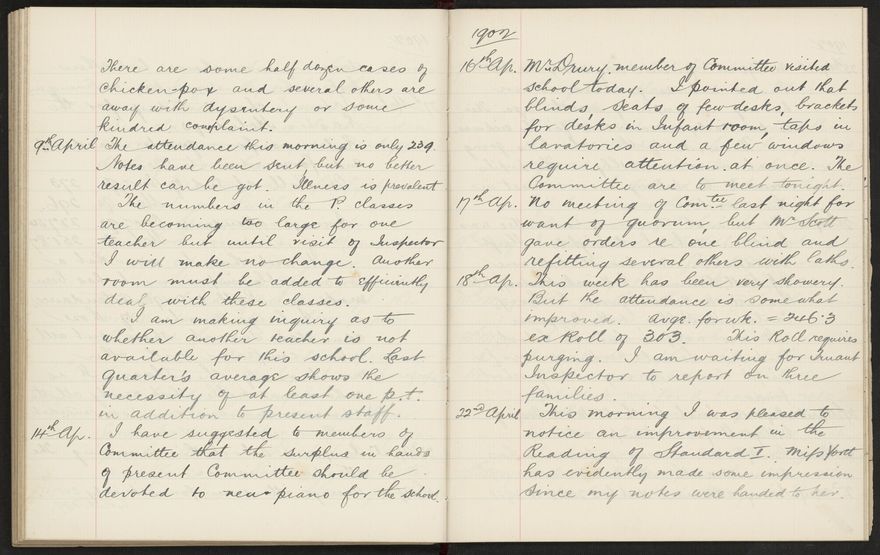 There are some half dozen cases of
chicken-pox and several others are
away with dysentery or some
kindred complaint.
9th April The attendance this morning is only 239.
Notes have been sent, but no better
result can be got. Illness is prevalent
The numbers in the P. classes
are becoming too large for one
teacher but until visit of Inspector
I will make no change. Another
room must be added to efficiently
deal with these classes.
I am making inquiry as to
whether another teacher is not
available for this school. Last
quarter's average shows the
necessity of at least one p.t.
in addition to present staff.
14th Ap. I have suggested to members of
Committee that the surplus in hands
of present Committee should be
devoted to new piano for the school.
1902
16th Ap. Mr Drury, member of Committee visited
school today. I pointed out that
blinds, seats of few desks, brackets
for desks in Infant room, taps in
lavatories and a few windows
require attention at once. The
Committee are to meet tonight.
17th Ap. No meeting of Comtee last night for
want of quorum, but Mr Scott
gave orders re one blind and
refitting several others with laths.
18th Ap. This week has been very showery.
But the attendance is somewhat
improved. Avge. for wk. = 246.3
ex Roll of 303. This Roll requires
purging. I am waiting for Truant
Inspector to report on three
families.
22nd April This morning I was pleased to
notice an improvement in the
Reading of Standard I. Miss
has evidently made some impression
since my notes were handed to her.